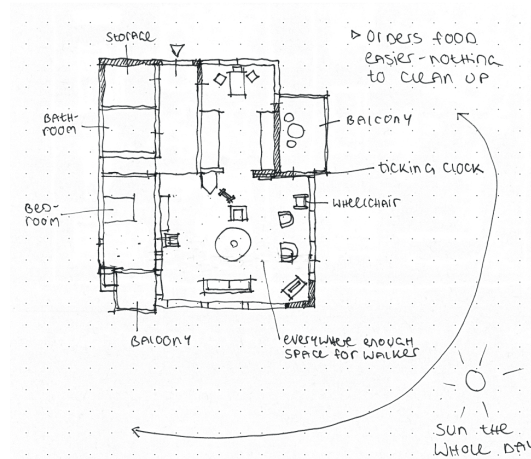 STORAGE
▷ ORDERS FOOD
EASIER - NOTHING
TO CLEAN UP
BATH-
ROOM
BALCONY
TICKING CLOCK
WHEELCHAIR
BED-
ROOM
BALCONY
EVERYWHERE ENOUGH
SPACE FOR WALKER
SUN THE
WHOLE DAY